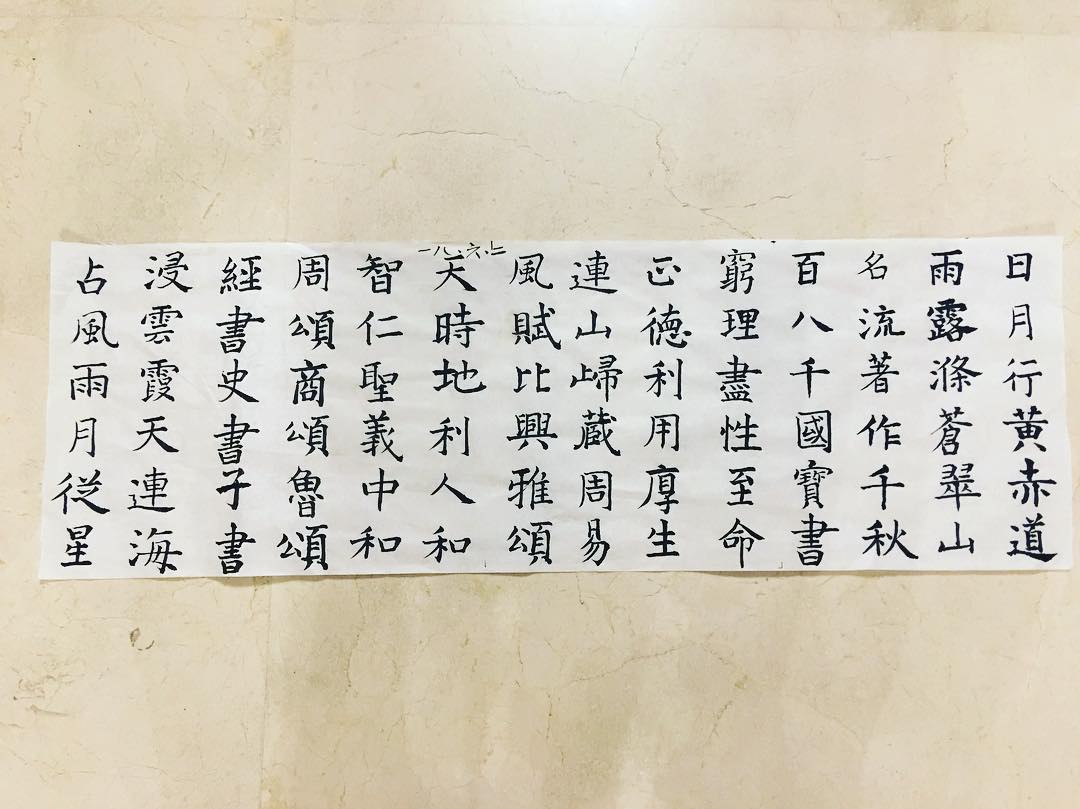 日月行黄赤道
雨露滌蒼翠山
名流著作千秋
百八千國寶書
窮理盡性至命
正德利用厚生
連山歸藏周易
風賦比興雅頌
天時地利人和
智仁聖義中和
周頌商頌魯頌
經書史書子書
浸雲霞天連海
占風雨月從星